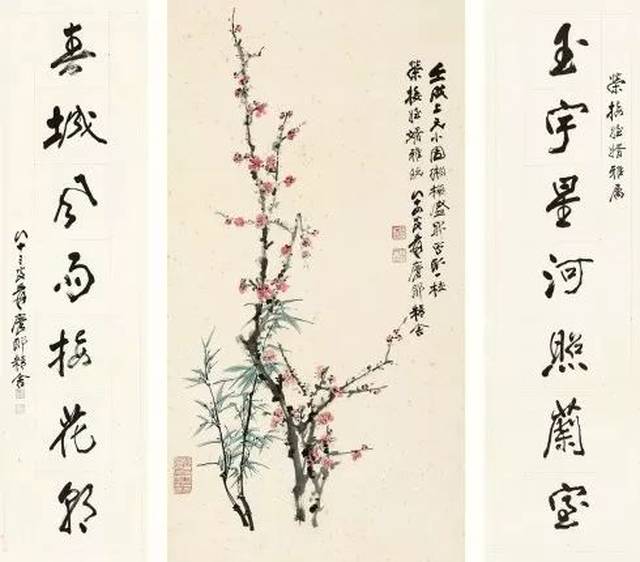 榮梅姪婿雅屬
玉宇星河照蘭室
壬戌上元小園梅盛開寫一枝
榮梅姪婿雅玩 八十四叟爰摩耶精舍
春城風雨梅花
八十三叟爰摩耶精舍